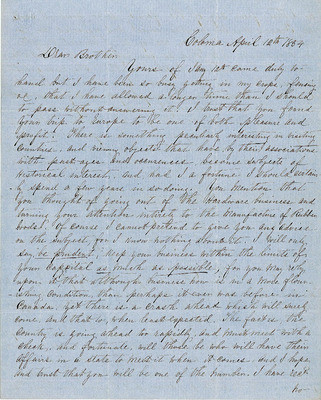 Coloma April 12th 1854
Dear Brother
Yours of Jany 12th came duly to
hand but I have been so busy getting in my crops, fencing
&c, that I have allowed a longer time than I should
to pass without answering it. I trust that you found
your trip to Europe to be one of both pleasure and
profit. There is something peculiarly interesting in visiting
Countries, and viewing objects that have by their associations
with past ages and occurences, become subjects of
Historical interest, and had I a fortune I would certainly
spend a few years in so doing. You mention that
you thought of going out of the Hardware business and
turning your attention entirely to the Manufacture of Rubber
Goods. Of course I cannot pretend to give you any advice
on the subject, for I know nothing about it. I will only
say be prudent, keep your business within the limits of
your Cappital as much as possible, for you may rely
upon it that although business now is in a more flour-
ishing Condition than perhaps it ever was before in
Canada, yet there is a crash ahead which will surely
come and that too when least expected. The fact is the
Country is going ahead too rapidly, and must meet with a
check, and fortunate will those be who will have their
affairs in a state to meet it when it comes, and I hope
and trust that you will be one of the number. I have
no